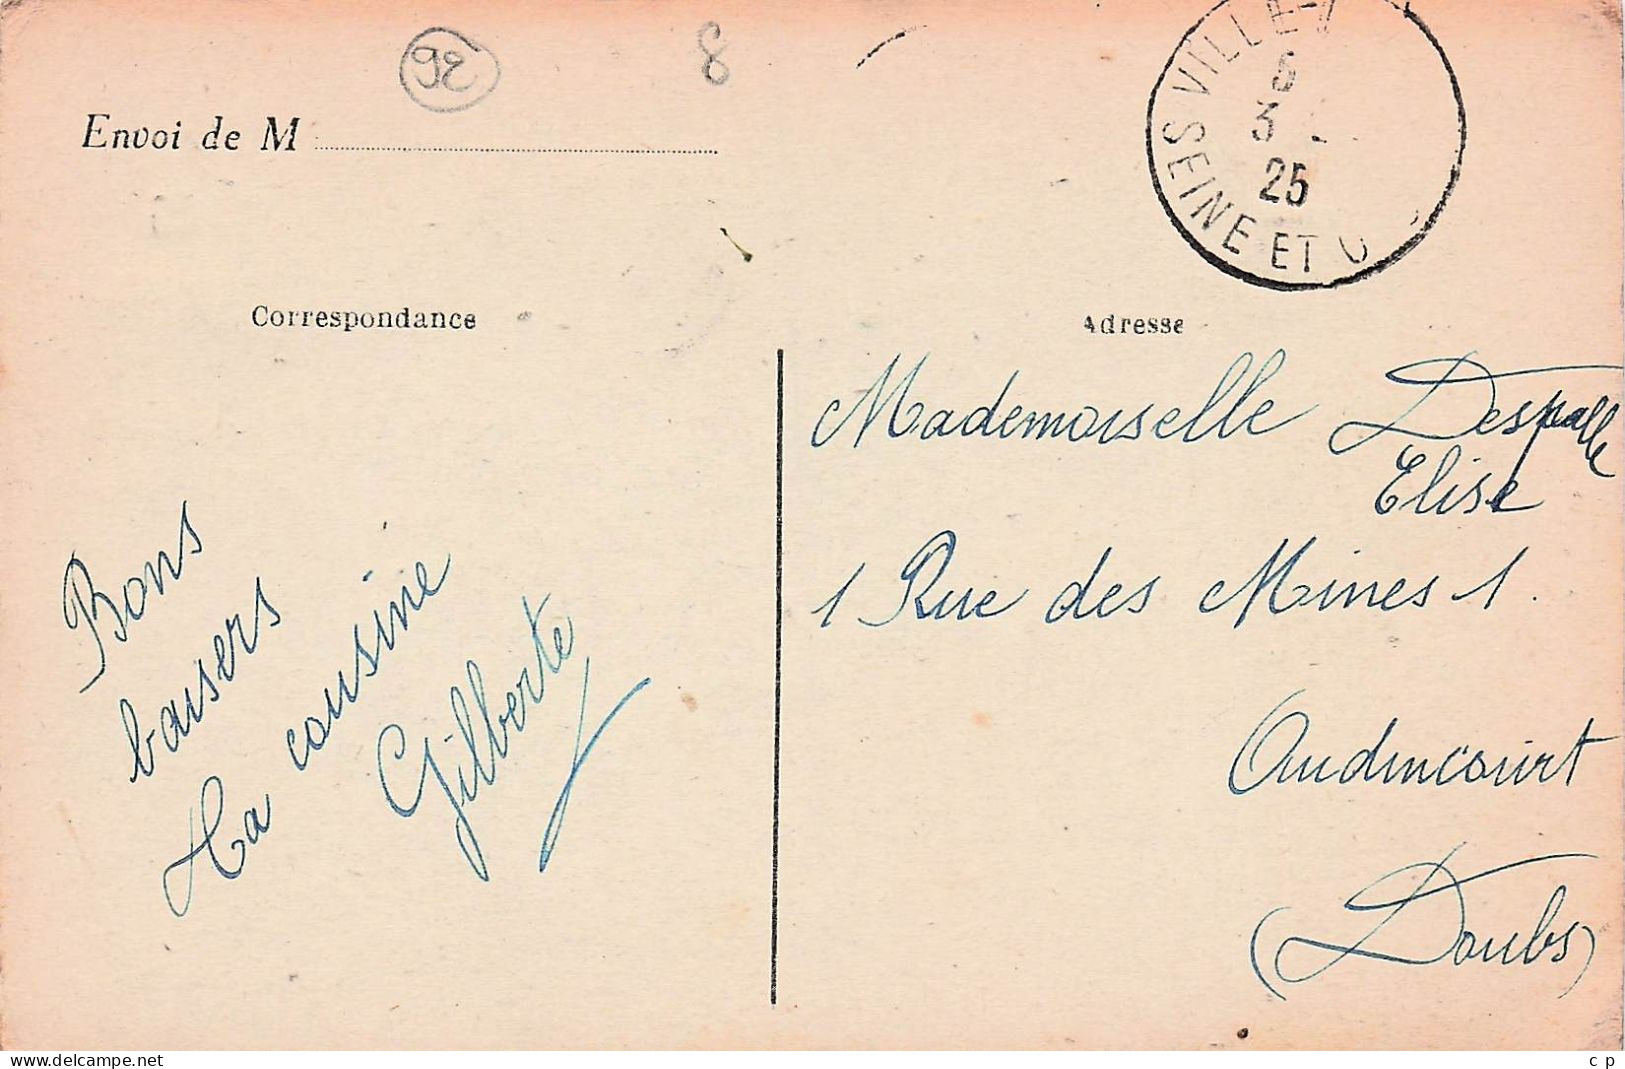 92
8
Envoi de M
VILLE-
5
3
25
SEINE ET
Correspondance
Adresse
Bons
baisers
Ta cousine
Gilberte
Mademoiselle Despalle
Elise
1 Rue des Mines 1.
Audincourt
(Doubs)
www.delcampe.net
c p